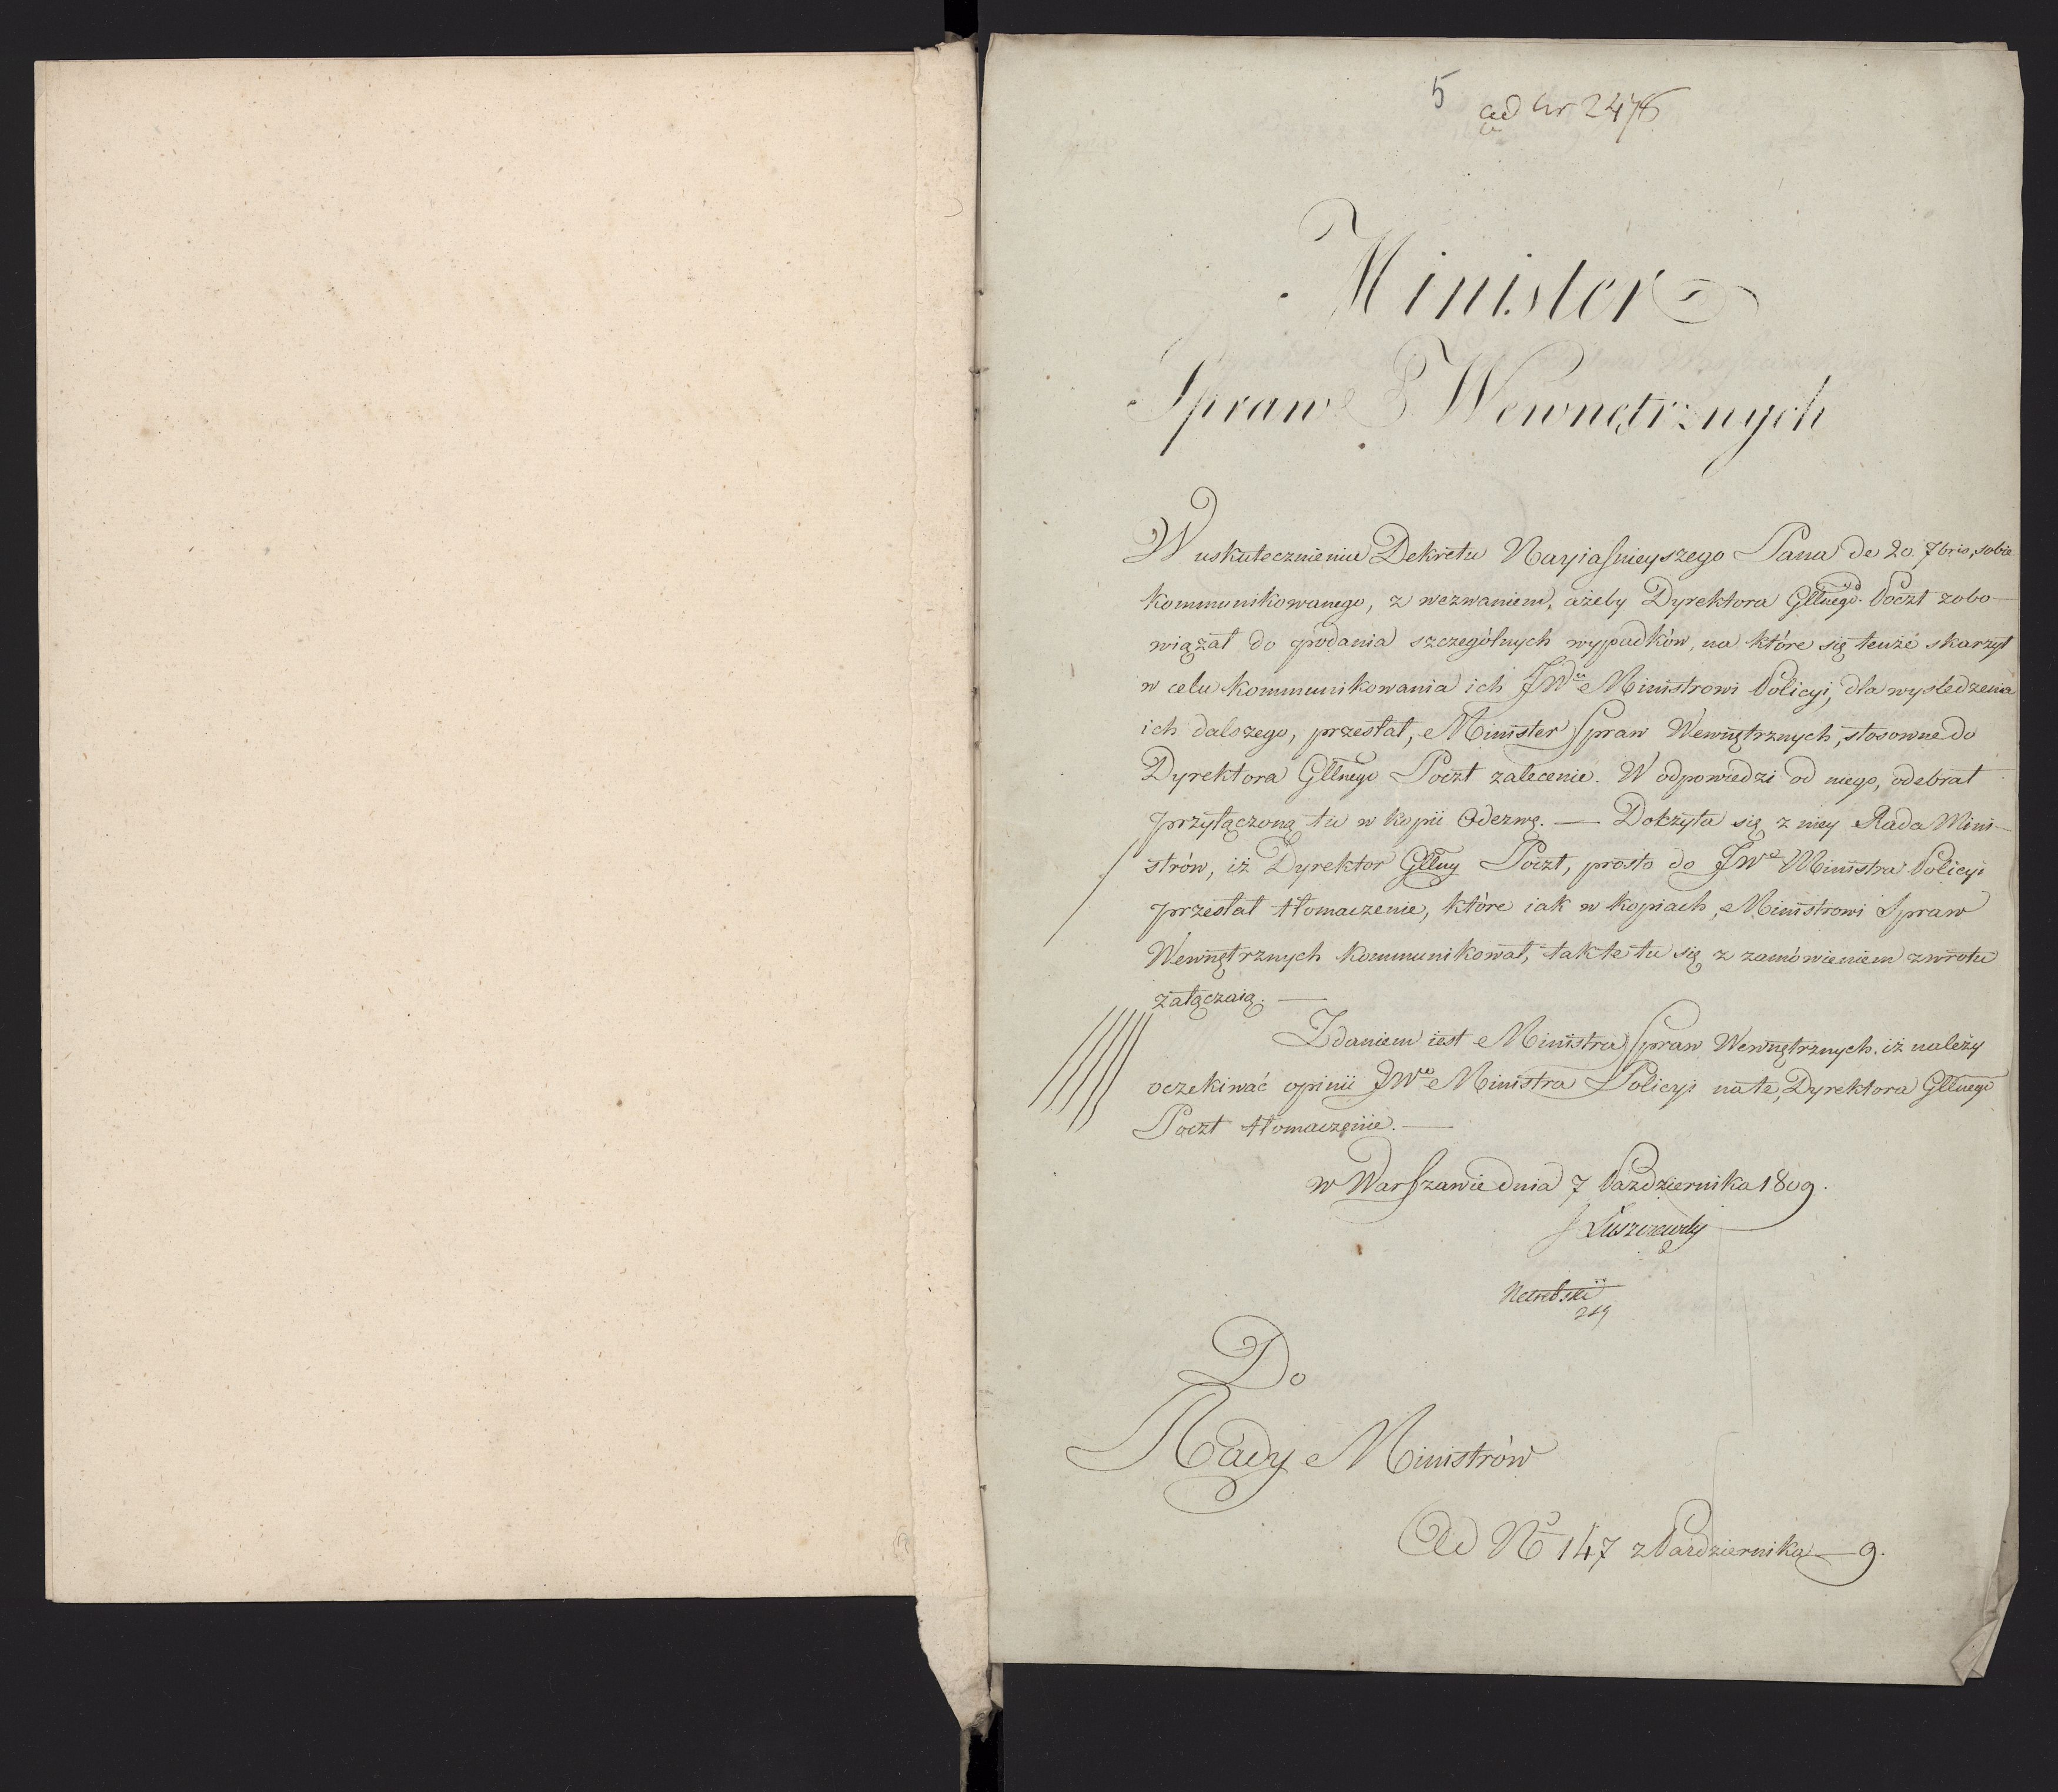 5
ad Nr 2476
Minister
Spraw Wewnętrznych
W uskutecznieniu Dekretu Nayiaśnieyszego Pana de 20 7bris, sobie
kommunikowanego, z wezwaniem, ażeby Dyrektora Gllnego Poczt zobo-
wiązał do podania szczególnych wypadków, na które się tenże skarżył
w celu kommunikowania ich JWu Ministrowi Policyi, dla wysledzenia
ich dalszego, przesłał, Minister Spraw Wewnętrznych, stosowne do
Dyrektora Gllnego Poczt zalecenie. W odpowiedzi od niego, odebrał
przyłączoną tu w kopii Odezwę. — Doczyta się z niey Rada Mini-
strów, iż Dyrektor Gllny Poczt, prosto do JWo Ministra Policyi
przesłał tłomaczenie, które iak w kopiach, Ministrowi Spraw
Wewnętrznych kommunikował, tak te tu się z zamówieniem zwrotu
załączaią. —
Zdaniem iest Ministra Spraw Wewnętrznych, iż należy
oczekiwać opinii JWo Ministra Policyi na te, Dyrektora Gllnego
Poczt tłomaczenie. —
w Warszawie dnia 7 Października 1809.
J Łuszczewski
Do
Rady Ministrów
Ad No 147 z Października — 9.